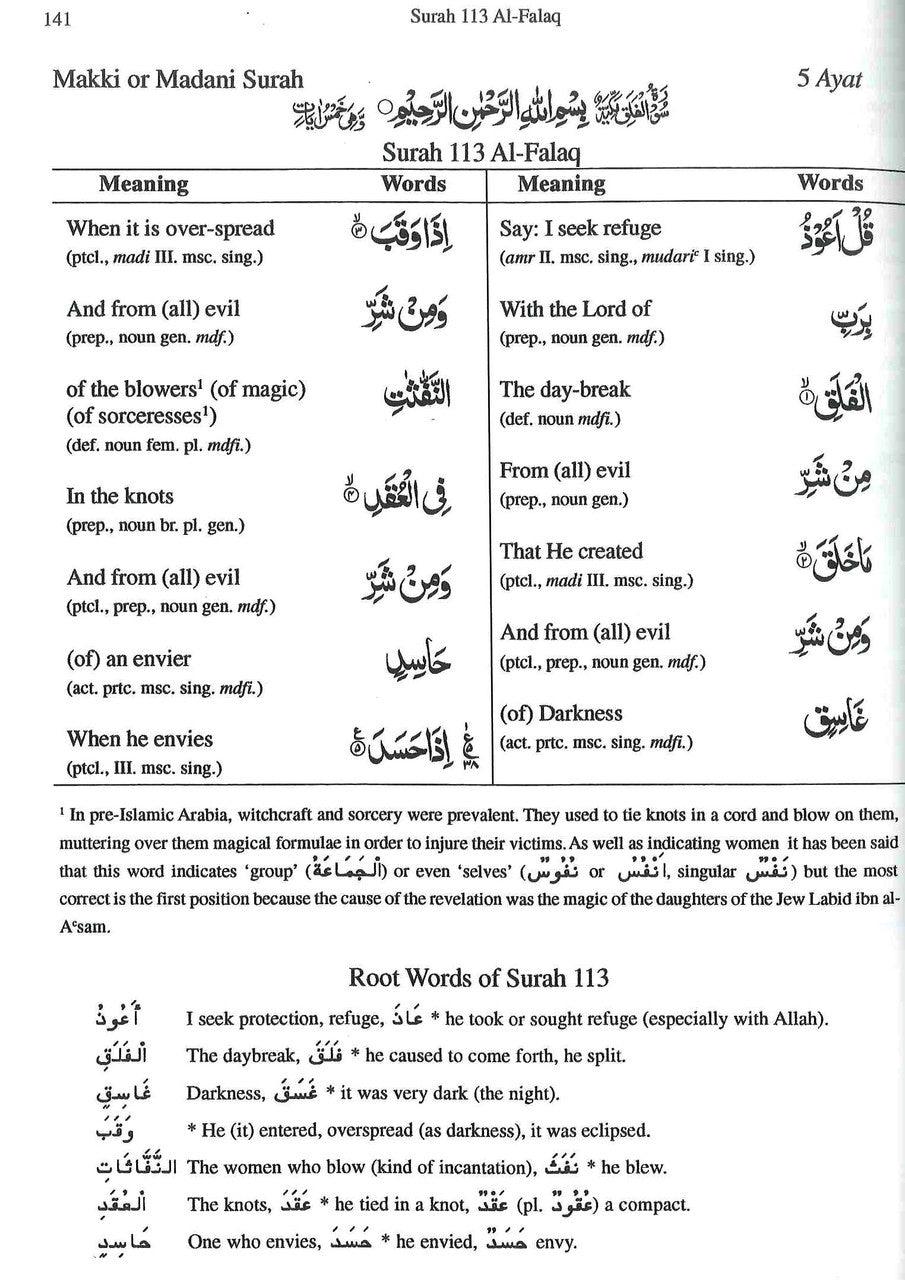 141
Surah 113 Al-Falaq
Makki or Madani Surah
5 Ayat
سُوْرَةُ الْفَلَقِ مَكِّيَّةٌ بِسْمِ اللهِ الرَّحْمٰنِ الرَّحِيْمِ وَهِيَ خَمْسُ اٰيَاتٍ
Surah 113 Al-Falaq
Meaning Words Meaning Words
Say: I seek refuge قُلْ اَعُوْذُ
(amr II. msc. sing., mudariᶜ I sing.)
With the Lord of بِرَبِّ
(prep., noun gen. mdf.)
The day-break الْفَلَقِ ۙ﴿١﴾
(def. noun mdfi.)
From (all) evil مِنْ شَرِّ
(prep., noun gen.)
That He created مَا خَلَقَ ۙ﴿٢﴾
(ptcl., madi III. msc. sing.)
And from (all) evil وَمِنْ شَرِّ
(ptcl., prep., noun gen. mdf.)
(of) Darkness غَاسِقٍ
(act. prtc. msc. sing. mdfi.)
When it is over-spread اِذَا وَقَبَ ۙ﴿٣﴾
(ptcl., madi III. msc. sing.)
And from (all) evil وَمِنْ شَرِّ
(prep., noun gen. mdf.)
of the blowers¹ (of magic) النَّفّٰثٰتِ
(of sorceresses¹)
(def. noun fem. pl. mdfi.)
In the knots فِى الْعُقَدِ ۙ﴿٤﴾
(prep., noun br. pl. gen.)
And from (all) evil وَمِنْ شَرِّ
(ptcl., prep., noun gen. mdf.)
(of) an envier حَاسِدٍ
(act. prtc. msc. sing. mdfi.)
When he envies اِذَا حَسَدَ ﴿٥﴾ ع ٣٨
(ptcl., III. msc. sing.)
¹ In pre-Islamic Arabia, witchcraft and sorcery were prevalent. They used to tie knots in a cord and blow on them,
muttering over them magical formulae in order to injure their victims. As well as indicating women it has been said
that this word indicates ‘group’ (الْجَمَاعَةُ) or even ‘selves’ (نُفُوْسٌ or أَنْفُسٌ, singular نَفْسٌ) but the most
correct is the first position because the cause of the revelation was the magic of the daughters of the Jew Labid ibn al-
Aᶜsam.
Root Words of Surah 113
أَعُوذُ I seek protection, refuge, عَاذَ * he took or sought refuge (especially with Allah).
الْفَلَقِ The daybreak, فَلَقَ * he caused to come forth, he split.
غَاسِقٍ Darkness, غَسَقَ * it was very dark (the night).
وَقَبَ * He (it) entered, overspread (as darkness), it was eclipsed.
النَّفَّاثَاتِ The women who blow (kind of incantation), نَفَثَ * he blew.
الْعُقَدِ The knots, عَقَدَ * he tied in a knot, عَقْدٌ (pl. عُقُودٌ) a compact.
حَاسِدٍ One who envies, حَسَدَ * he envied, حَسَدٌ envy.